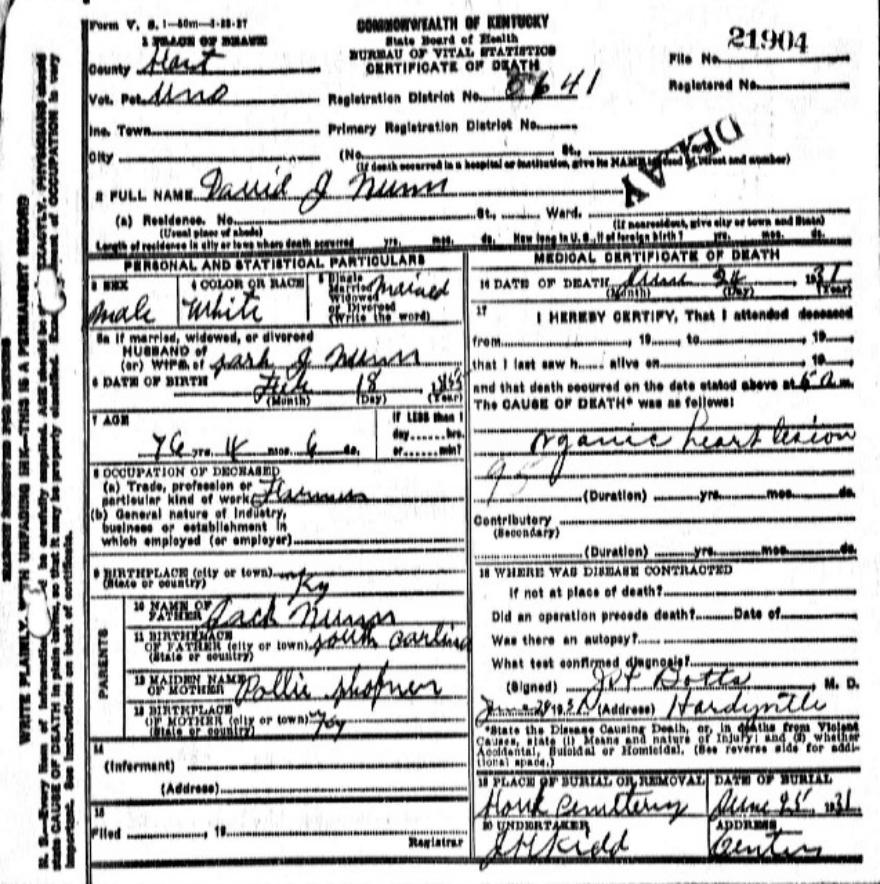 Form V. S. 1-50m-1-28-27
COMMONWEALTH OF KENTUCKY
State Board of Health
BUREAU OF VITAL STATISTICS
CERTIFICATE OF DEATH
21904
File No.
Registered No.
1 PLACE OF DEATH
County Hart
Vot. Pct. Uno
Registration District No. 8641
Inc. Town
Primary Registration District No.
City (No. St., Ward)
(If death occurred in a hospital or institution, give its NAME instead of street and number)
DELAY
2 FULL NAME David J Nunn
(a) Residence. No. St., Ward.
(Usual place of abode) (If nonresident, give city or town and State)
Length of residence in city or town where death occurred yrs. mos. ds. How long in U. S., if of foreign birth? yrs. mos. ds.
PERSONAL AND STATISTICAL PARTICULARS
3 SEX
Male
4 COLOR OR RACE
White
5 Single
Married
Widowed
or Divorced
(Write the word)
Married
5a If married, widowed, or divorced
HUSBAND of
(or) WIFE of Sarh J Nunn
6 DATE OF BIRTH Feb 18 1855
(Month) (Day) (Year)
7 AGE
76 yrs. 4 mos. 6 ds.
If LESS than 1
day......hrs.
or......min?
8 OCCUPATION OF DECEASED
(a) Trade, profession or
particular kind of work Farmer
(b) General nature of industry,
business or establishment in
which employed (or employer)
9 BIRTHPLACE (city or town)
(State or country) Ky
PARENTS
10 NAME OF
FATHER Jack Nunn
11 BIRTHPLACE
OF FATHER (city or town) South Carlina
(State or country)
12 MAIDEN NAME
OF MOTHER Pollie Shofner
13 BIRTHPLACE
OF MOTHER (city or town) Ky
(State or country)
14
(Informant)
(Address)
15
Filed , 19
Registrar
MEDICAL CERTIFICATE OF DEATH
16 DATE OF DEATH June 24 1931
(Month) (Day) (Year)
17
I HEREBY CERTIFY, That I attended deceased
from , 19 , to , 19
that I last saw h alive on , 19
and that death occurred on the date stated above at 5 a.m.
The CAUSE OF DEATH* was as follows:
Organic heart lesion
95
(Duration) yrs. mos. ds.
Contributory
(Secondary)
(Duration) yrs. mos. ds.
18 WHERE WAS DISEASE CONTRACTED
If not at place of death?
Did an operation precede death? Date of
Was there an autopsy?
What test confirmed diagnosis?
(Signed) Botts M. D.
(Address) Hardyville
*State the Disease Causing Death, or, in deaths from Violent
Causes, state (1) Means and nature of Injury; and (2) whether
Accidental, Suicidal or Homicidal. (See reverse side for addi-
tional space.)
19 PLACE OF BURIAL OR REMOVAL
Cemetery
DATE OF BURIAL
June 25 1931
20 UNDERTAKER
J H Kidd
ADDRESS
Center
MARGIN RESERVED FOR BINDING
WRITE PLAINLY, WITH UNFADING INK—THIS IS A PERMANENT RECORD
N. B.—Every item of information should be carefully supplied. AGE should be EXACTLY. PHYSICIANS should
state CAUSE OF DEATH in plain terms, so that it may be properly classified. Exact statement of OCCUPATION is very
important. See instructions on back of certificate.